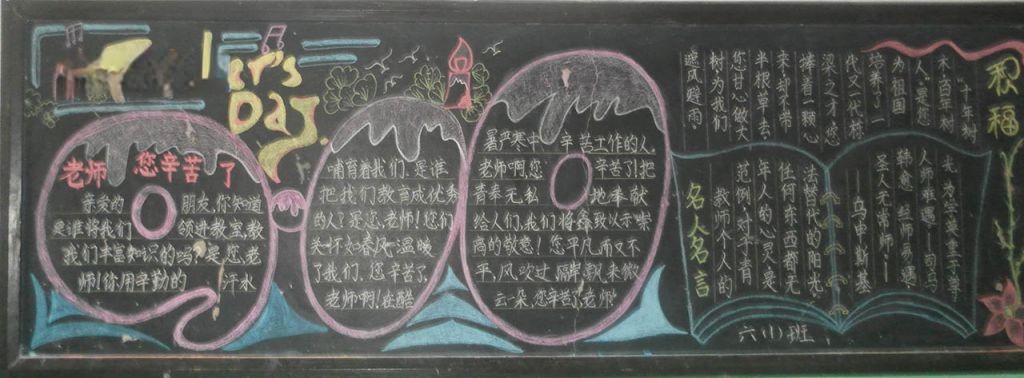 er's
Day
老师 您辛苦了
亲爱的 朋友,你知道
是谁将我们 领进教室,教
我们丰富知识的吗?是您,老
师!你用辛勤的 汗水
哺育着我们.是谁
把我们教育成优秀
的人?是您,老师!您们
温暖
了我们,您辛苦了
老师啊!在酷
暑严寒中 辛苦工作的人,
老师啊,您 辛苦了!把
青春无私 地奉献
给人们,我们将 致以示崇
高的敬意!您平凡而又不
平,风吹过 飘来微
云一朵,您辛苦了,老师!
积福
十年树
木,百年树
人,是您
为祖国
培养了一
代又一代栋
梁之才,您
捧着一颗心
来,却不带
半根草去,
您甘心做大
树,为我们
遮风避雨.
名人名言
教师个人的
范例,对于青
年人的心灵,是
任何东西都不
代替的阳光.
——乌申斯基
圣人无常师.——
韩愈 经师易遇,
人师难遇——司马
光
六(1)班